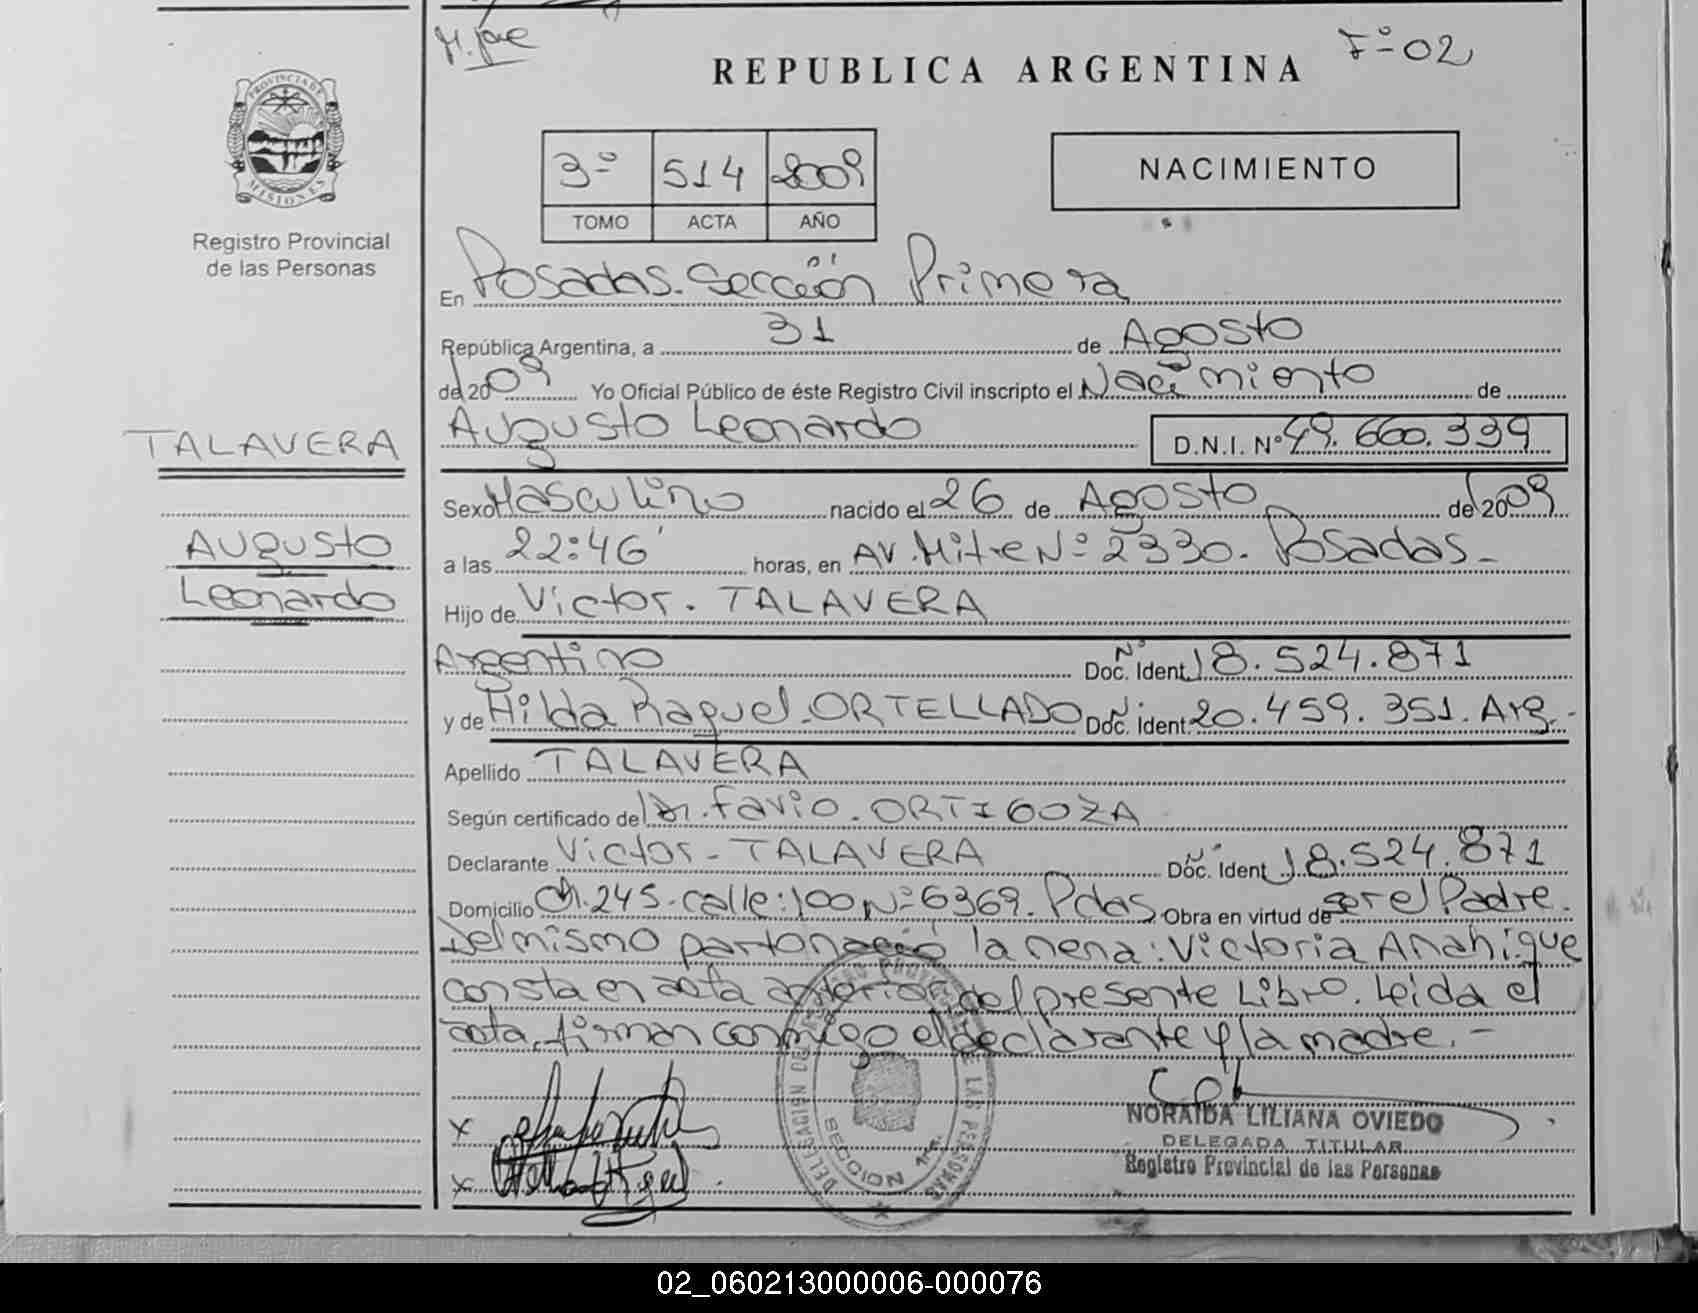 M. José
REPUBLICA ARGENTINA
Fº 02
PROVINCIA DE MISIONES
Registro Provincial
de las Personas
3º 514 2009
TOMO ACTA AÑO
NACIMIENTO
En Posadas. Sección Primera
República Argentina, a 31 de Agosto
de 2009 Yo Oficial Público de éste Registro Civil inscripto el Nacimiento de
TALAVERA
Augusto Leonardo D.N.I. Nº 49.660.339
Sexo Masculino nacido el 26 de Agosto de 2009
Augusto
a las 22:46' horas, en AV. Mitre Nº 2330. Posadas-
Leonardo
Hijo de Victor. TALAVERA
Argentino Doc. Ident. Nº 18.524.871
y de Hilda Raquel. ORTELLADO Doc. Ident. Nº 20.459.351. Arg.-
Apellido TALAVERA
Según certificado del Dr. Favio. ORTIGOZA
Declarante Victor - TALAVERA Doc. Ident Nº 18.524.871
Domicilio Ch. 245. calle: 100 Nº 6369. Pdas. Obra en virtud de ser el Padre.
Del mismo parto nació la nena: Victoria Anahi. que
consta en acta anterior del presente Libro. Leida el
acta, firman conmigo el declarante y la madre. -
x
x
SECCION 1ra
NORAIDA LILIANA OVIEDO
DELEGADA TITULAR
Registro Provincial de las Personas
02_060213000006-000076